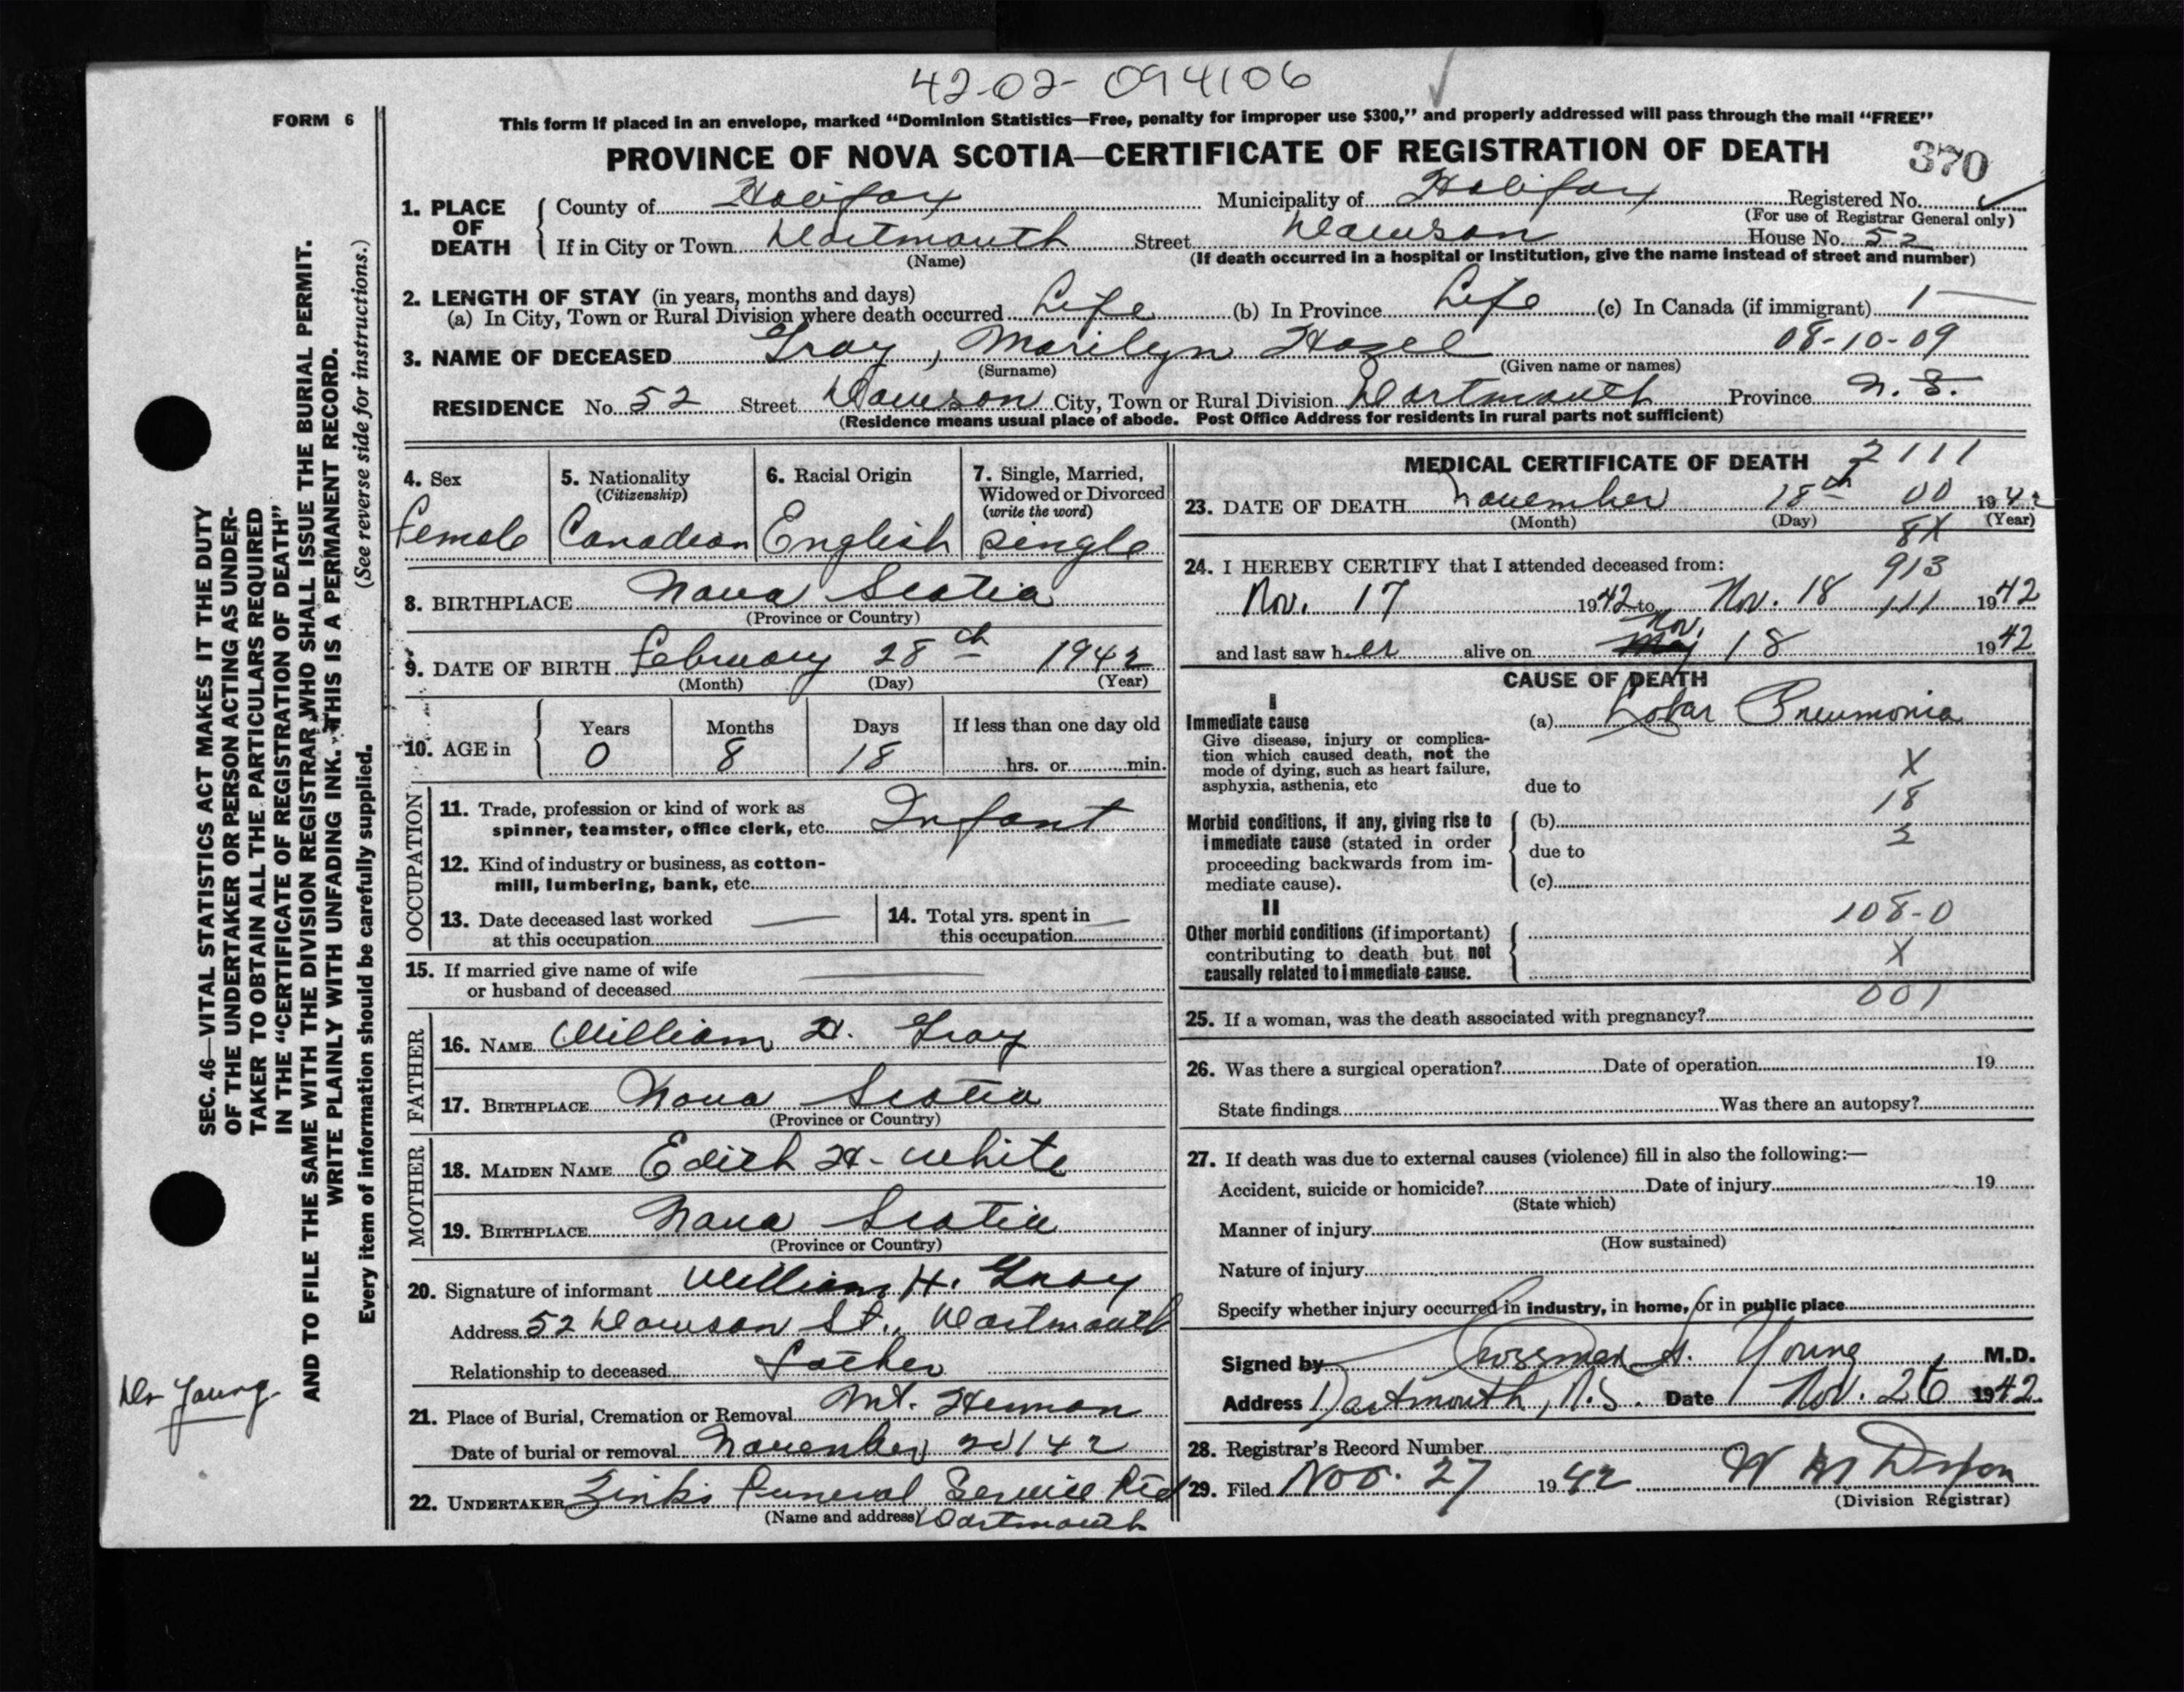 42-02-094106
FORM 6
This form if placed in an envelope, marked "Dominion Statistics—Free, penalty for improper use $300," and properly addressed will pass through the mail "FREE"
PROVINCE OF NOVA SCOTIA—CERTIFICATE OF REGISTRATION OF DEATH 370
1. PLACE OF DEATH County of Halifax Municipality of Halifax Registered No.
(For use of Registrar General only)
If in City or Town Dartmouth Street Dawson House No. 52
(Name) (If death occurred in a hospital or institution, give the name instead of street and number)
2. LENGTH OF STAY (in years, months and days)
(a) In City, Town or Rural Division where death occurred Life (b) In Province Life (c) In Canada (if immigrant)
3. NAME OF DECEASED Gray, Marilyn Hazel 08-10-09
(Surname) (Given name or names)
RESIDENCE No. 52 Street Dawson City, Town or Rural Division Dartmouth Province N. S.
(Residence means usual place of abode. Post Office Address for residents in rural parts not sufficient)
4. Sex
female
5. Nationality
(Citizenship)
Canadian
6. Racial Origin
English
7. Single, Married,
Widowed or Divorced
(write the word)
single
8. BIRTHPLACE Nova Scotia
(Province or Country)
9. DATE OF BIRTH February 28th 1942
(Month) (Day) (Year)
10. AGE in Years Months Days If less than one day old
0 8 18 hrs. or min.
OCCUPATION
11. Trade, profession or kind of work as
spinner, teamster, office clerk, etc. Infant
12. Kind of industry or business, as cotton-
mill, lumbering, bank, etc.
13. Date deceased last worked
at this occupation
14. Total yrs. spent in
this occupation
15. If married give name of wife
or husband of deceased
FATHER
16. NAME William H. Gray
17. BIRTHPLACE Nova Scotia
(Province or Country)
MOTHER
18. MAIDEN NAME Edith H. White
19. BIRTHPLACE Nova Scotia
(Province or Country)
20. Signature of informant William H. Gray
Address 52 Dawson St., Dartmouth
Relationship to deceased father
21. Place of Burial, Cremation or Removal Mt. Herman
Date of burial or removal November 20/42
22. UNDERTAKER Zinks Funeral Service Ltd
(Name and address) Dartmouth
MEDICAL CERTIFICATE OF DEATH 2111
23. DATE OF DEATH November 18th 00 1942
(Month) (Day) (Year)
8X
24. I HEREBY CERTIFY that I attended deceased from: 913
Nov. 17 1942 to Nov. 18 111 1942
and last saw her alive on Nov. 18 1942
CAUSE OF DEATH
I
Immediate cause (a) Lobar Pneumonia
Give disease, injury or complica-
tion which caused death, not the
mode of dying, such as heart failure,
asphyxia, asthenia, etc
X
due to
18
Morbid conditions, if any, giving rise to
immediate cause (stated in order
proceeding backwards from im-
mediate cause).
(b)
due to
(c)
II
108-0
Other morbid conditions (if important)
contributing to death but not
causally related to immediate cause.
X
001
25. If a woman, was the death associated with pregnancy?
26. Was there a surgical operation? Date of operation 19
State findings Was there an autopsy?
27. If death was due to external causes (violence) fill in also the following:—
Accident, suicide or homicide? Date of injury 19
(State which)
Manner of injury
(How sustained)
Nature of injury
Specify whether injury occurred in industry, in home, or in public place
Signed by Young M.D.
Address Dartmouth, N.S. Date Nov. 26 1942
28. Registrar's Record Number
29. Filed Nov. 27 1942
(Division Registrar)
SEC. 46—VITAL STATISTICS ACT MAKES IT THE DUTY
OF THE UNDERTAKER OR PERSON ACTING AS UNDER-
TAKER TO OBTAIN ALL THE PARTICULARS REQUIRED
IN THE "CERTIFICATE OF REGISTRATION OF DEATH"
AND TO FILE THE SAME WITH THE DIVISION REGISTRAR WHO SHALL ISSUE THE BURIAL PERMIT.
WRITE PLAINLY WITH UNFADING INK. THIS IS A PERMANENT RECORD.
Every item of information should be carefully supplied. (See reverse side for instructions.)
Dr Young